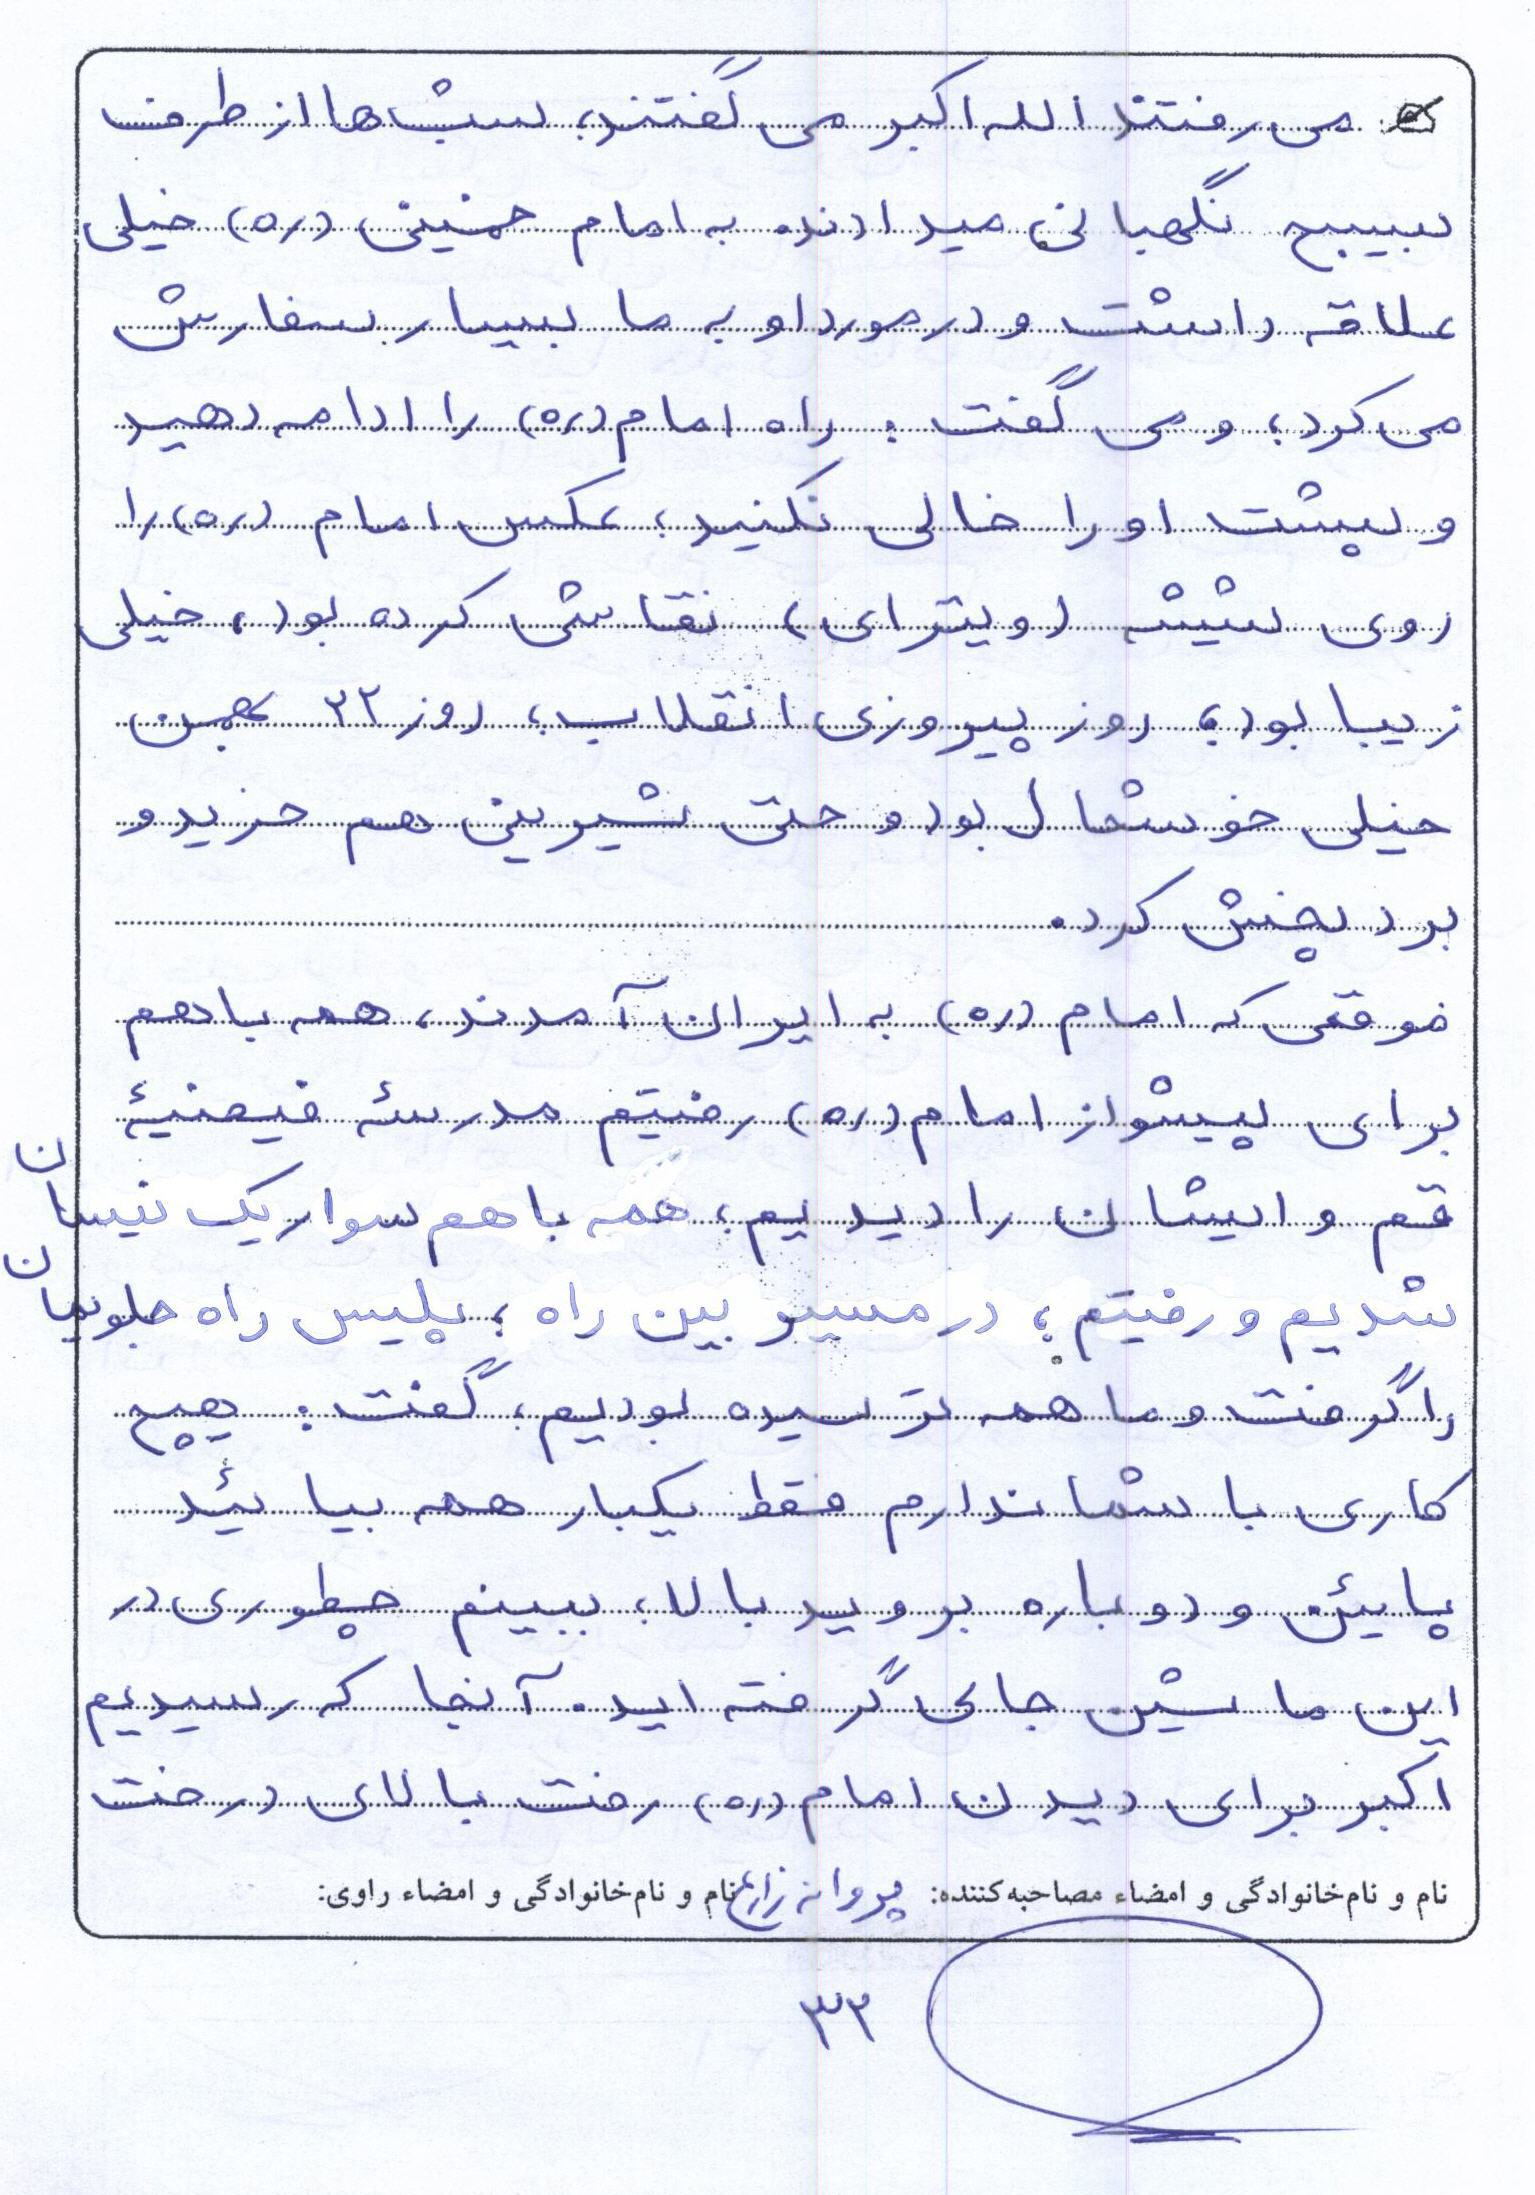 می رفتند الله اکبر می گفتند، شب ها از طرف
بسیج نگهبانی میدادند. به امام خمینی (ره) خیلی
علاقه داشت و در مورد او به ما بسیار سفارش
می کرد؛ و می گفت : راه امام (ره) را ادامه دهید
و پشت او را خالی نکنید؛ عکس امام (ره) را
روی شیشه (ویترای) نقاشی کرده بود، خیلی
زیبا بود؛ روز پیروزی انقلاب، روز ۲۲ بهمن
خیلی خوشحال بود و حتی شیرینی هم خرید و
برد پخش کرد.
موقعی که امام (ره) به ایران آمدند، همه با هم
برای پیشواز امام (ره) رفتیم مدرسهٔ فیضیهٔ
قم و ایشان را دیدیم؛ همه با هم سوار یک نیسان
شدیم و رفتیم؛ در مسیر بین راه ؛ پلیس راه جلویمان
را گرفت و ما همه ترسیده بودیم، گفت : هیچ
کاری با شما ندارم فقط یکبار همه بیائید
پایئن و دوباره بروید بالا، ببینم چطوری در
این ماشین جای گرفته اید. آنجا که رسیدیم
اکبر برای دیدن امام (ره) رفت بالای درخت
نام و نام‌خانوادگی و امضاء مصاحبه‌کننده: پروانه زارع نام و نام‌خانوادگی و امضاء راوی:
۳۲